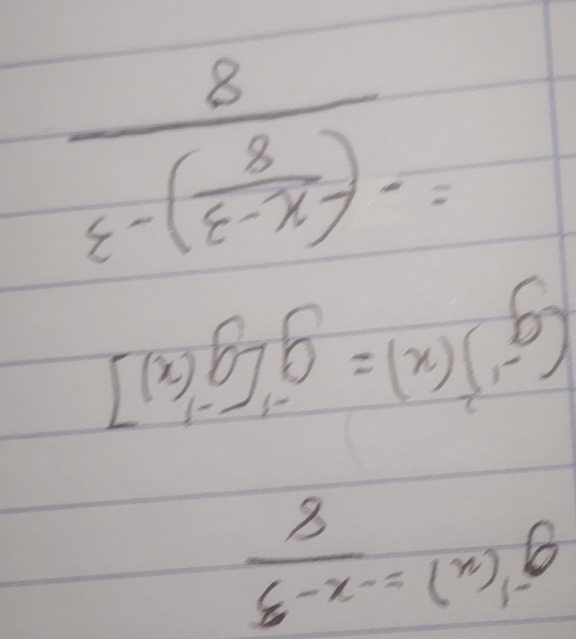 g⁻¹(x) = -x-3 / 8
(g⁻¹)²(x) = g⁻¹[g⁻¹(x)]
= -(-x-3 / 8) -3 / 8